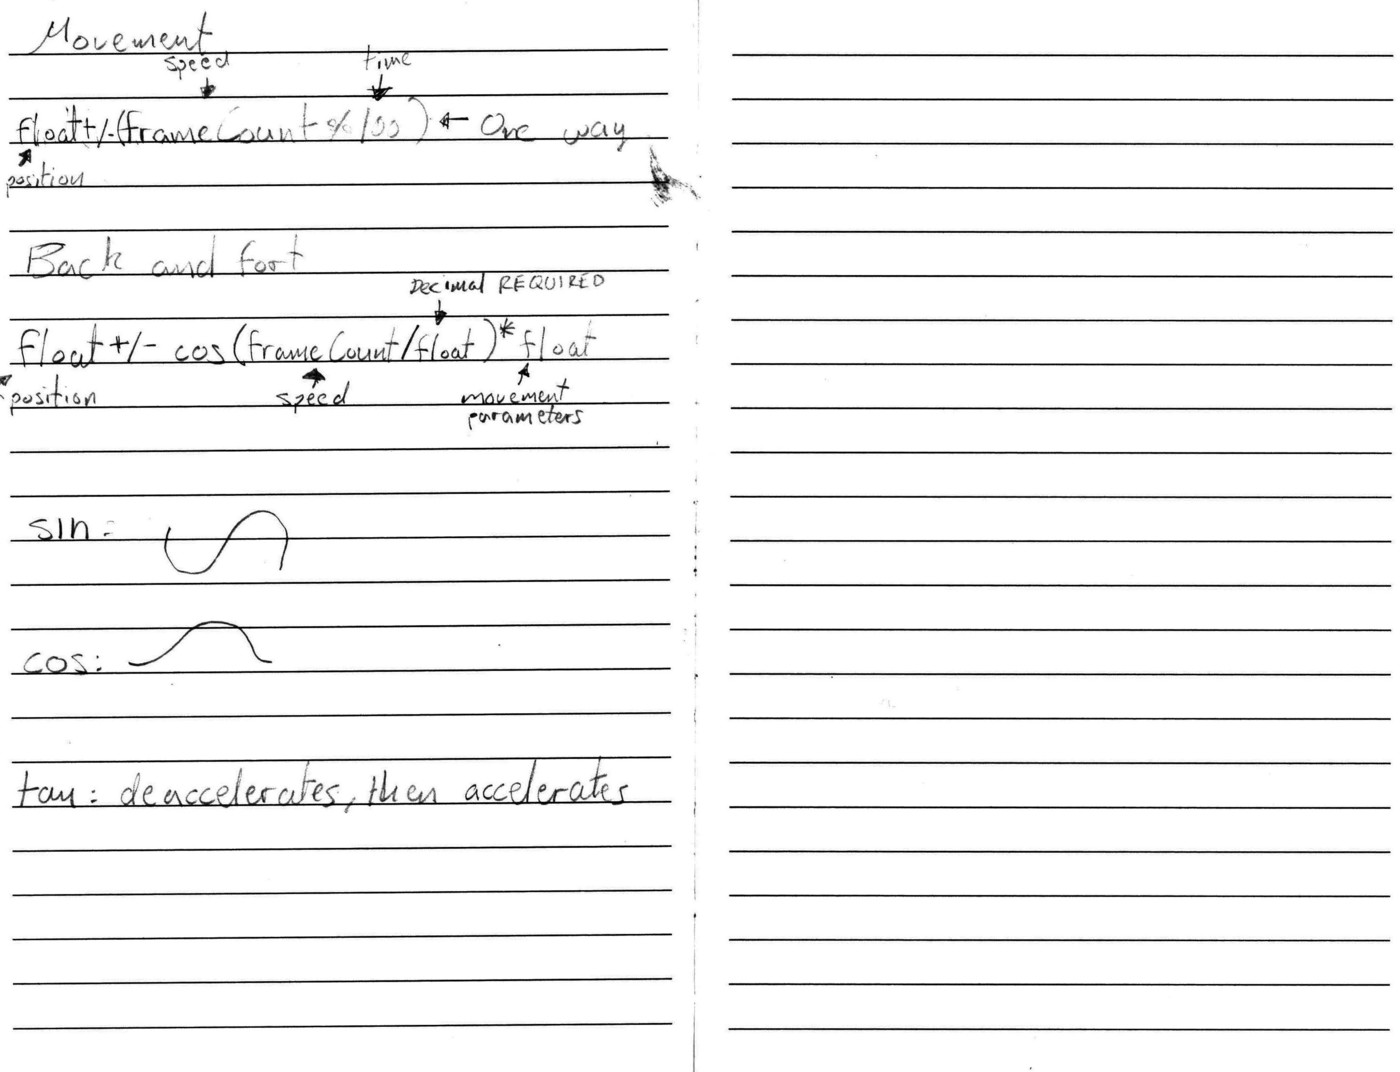 Movement
speed time
float+/-(frameCount%100) ← One way
position
Back and fort
Decimal REQUIRED
float+/- cos(frameCount/float)*float
position speed movement
parameters
sin:
cos:
tan: deaccelerates, then accelerates